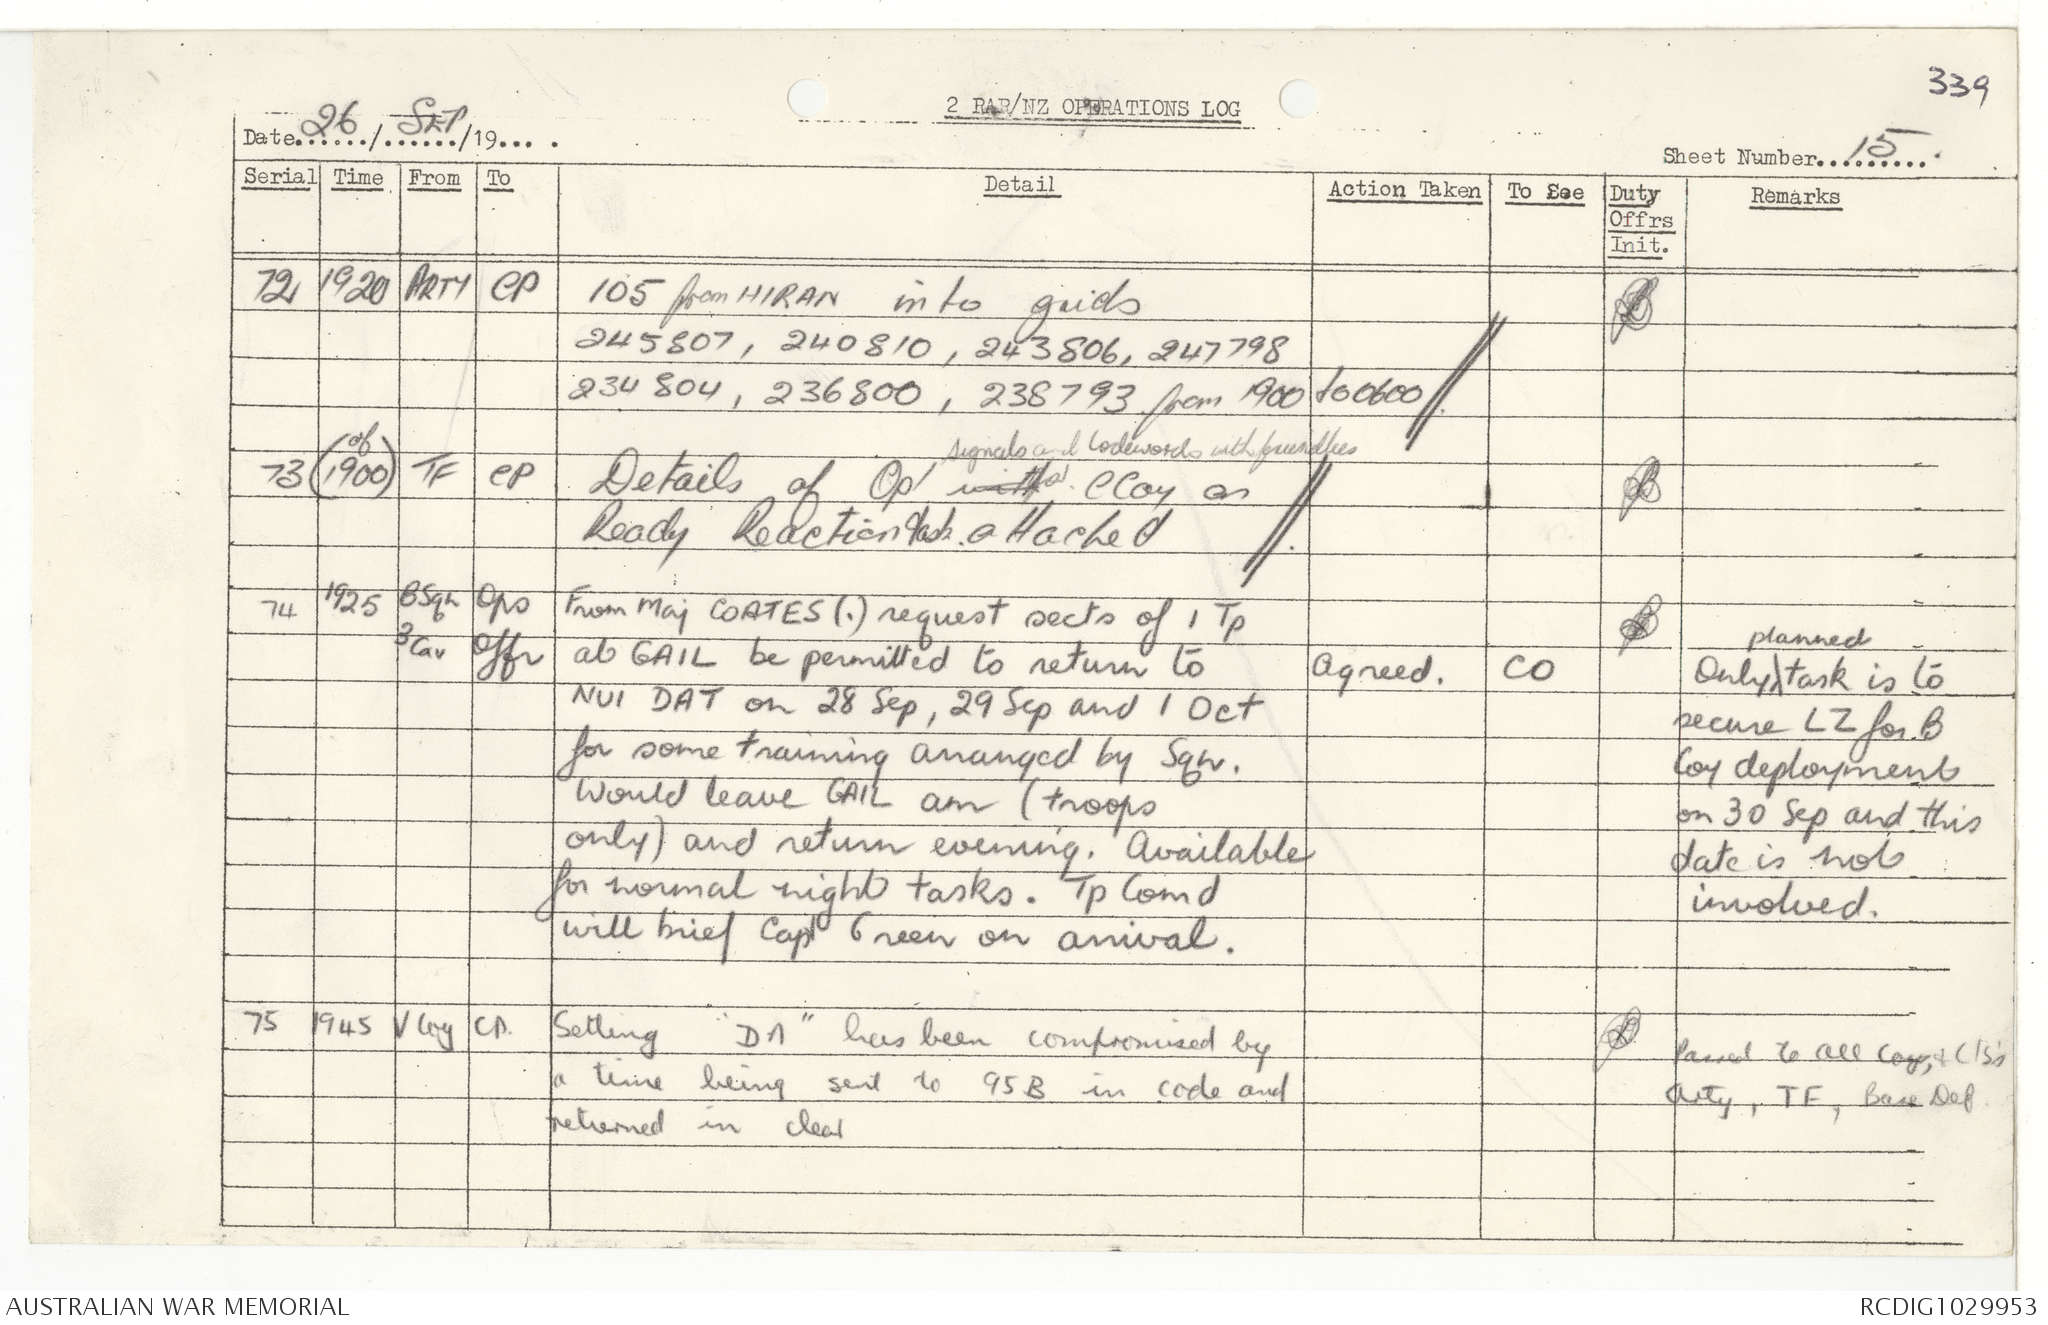 339
2 RAR/NZ OPERATIONS LOG
Date 26 / SEP /19....
Sheet Number 15
Serial Time From To Detail Action Taken To See Duty Offrs Init. Remarks
72 1920 ARTY CP 105 from HIRAN into grids
245807, 240810, 243806, 247798
234804, 236800, 238793 from 1900 to 0600
signals and Codewords with
73 (of 1900) TF CP Details of Op C Coy on
Ready Reaction task attached
74 1925 B Sqn Ops From Maj COATES (.) request sects of 1 Tp
planned
3 Cav Offr at GAIL be permitted to return to Agreed. CO Only task is to
NUI DAT on 28 Sep, 29 Sep and 1 Oct secure LZ for B
for some training arranged by Sqn. Coy deployment
Would leave GAIL am (troops on 30 Sep and this
only) and return evening. Available date is not
for normal night tasks. Tp Comd involved.
will brief Capt Green on arrival.
75 1945 V Coy CP. Setting "DA" has been compromised by Passed to all Coy, + C/S's
a time being sent to 95B in code and Arty, TF, Base Def.
returned in clear
AUSTRALIAN WAR MEMORIAL
RCDIG1029953